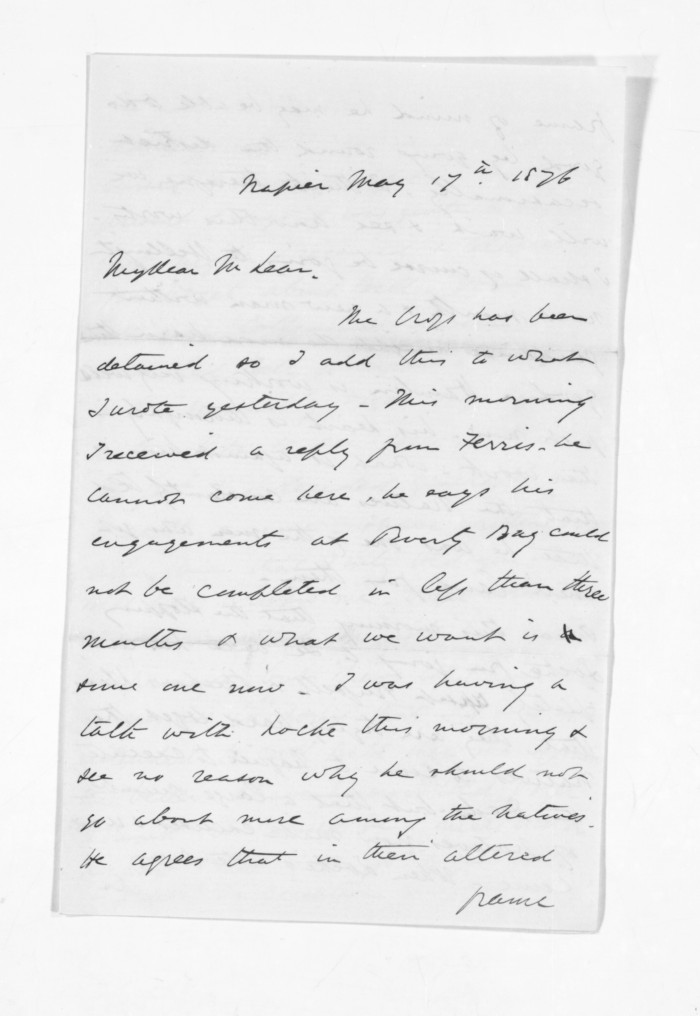 Napier May 17th. 1876
My Dear McLean.
The Crop has been
detained so I add this to what
I wrote yesterday - This morning
I received a reply from Ferris - he
cannot come here, he says his
engagements at Poverty Bay could
not be completed in less than three
months & what we want is
some one now - I was having a
talk with Locke this morning &
see no reason why he should not
go about more among the Natives.
He agrees that in their altered
frame